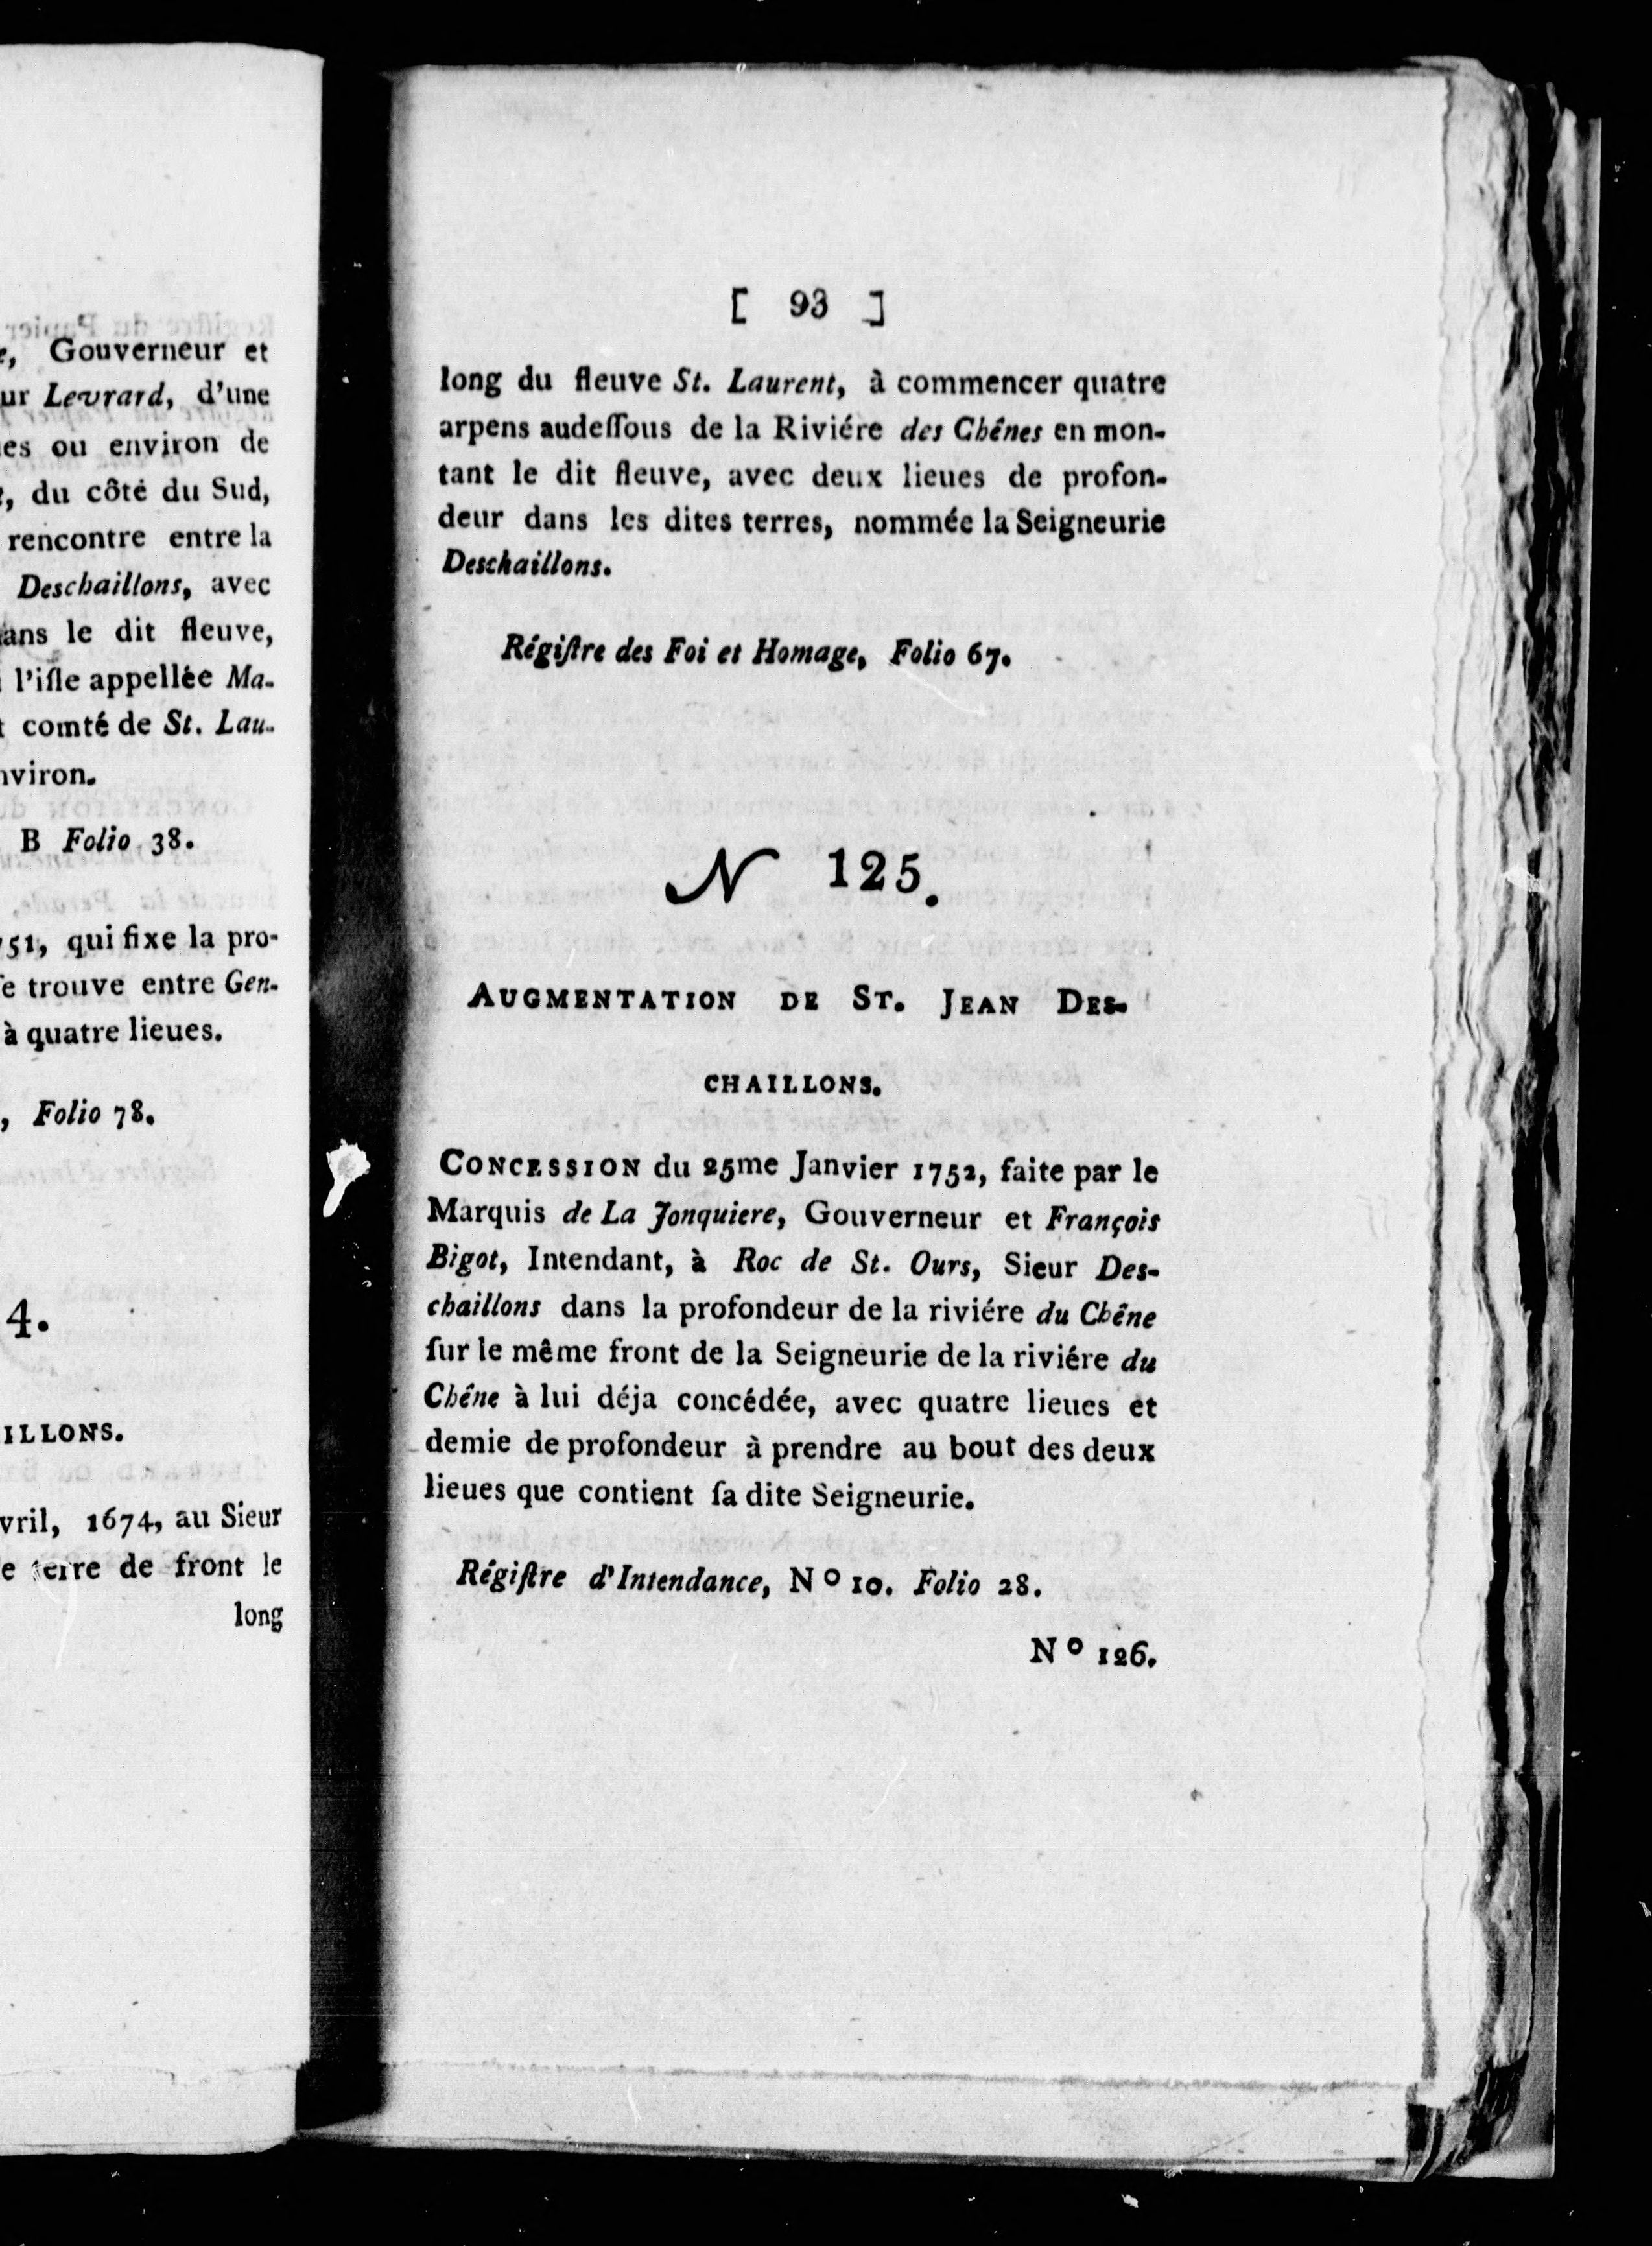 e, Gouverneur et
ur Levrard, d'une
es ou environ de
, du côté du Sud,
rencontre entre la
Deschaillons, avec
ans le dit fleuve,
l'iſle appellée Ma-
comté de St. Lau-
nviron.
B Folio 38.
751, qui fixe la pro-
ſe trouve entre Gen-
à quatre lieues.
, Folio 78.
4.
ILLONS.
vril, 1674, au Sieur
e terre de front le
long
[ 93 ]
long du fleuve St. Laurent, à commencer quatre
arpens audeſſous de la Riviére des Chênes en mon-
tant le dit fleuve, avec deux lieues de profon-
deur dans les dites terres, nommée la Seigneurie
Deschaillons.
Régiſtre des Foi et Homage, Folio 67.
N 125.
AUGMENTATION DE ST. JEAN DES-
CHAILLONS.
CONCESSION du 25me Janvier 1752, faite par le
Marquis de La Jonquiere, Gouverneur et François
Bigot, Intendant, à Roc de St. Ours, Sieur Des-
chaillons dans la profondeur de la riviére du Chêne
ſur le même front de la Seigneurie de la riviére du
Chêne à lui déja concédée, avec quatre lieues et
demie de profondeur à prendre au bout des deux
lieues que contient ſa dite Seigneurie.
Régiſtre d'Intendance, Nº 10. Folio 28.
Nº 126.